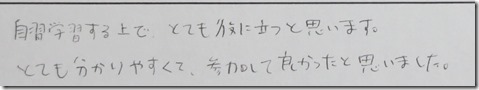 自習学習する上で、とても役に立つと思います。
とても分かりやすくて、参加して良かったと思いました。